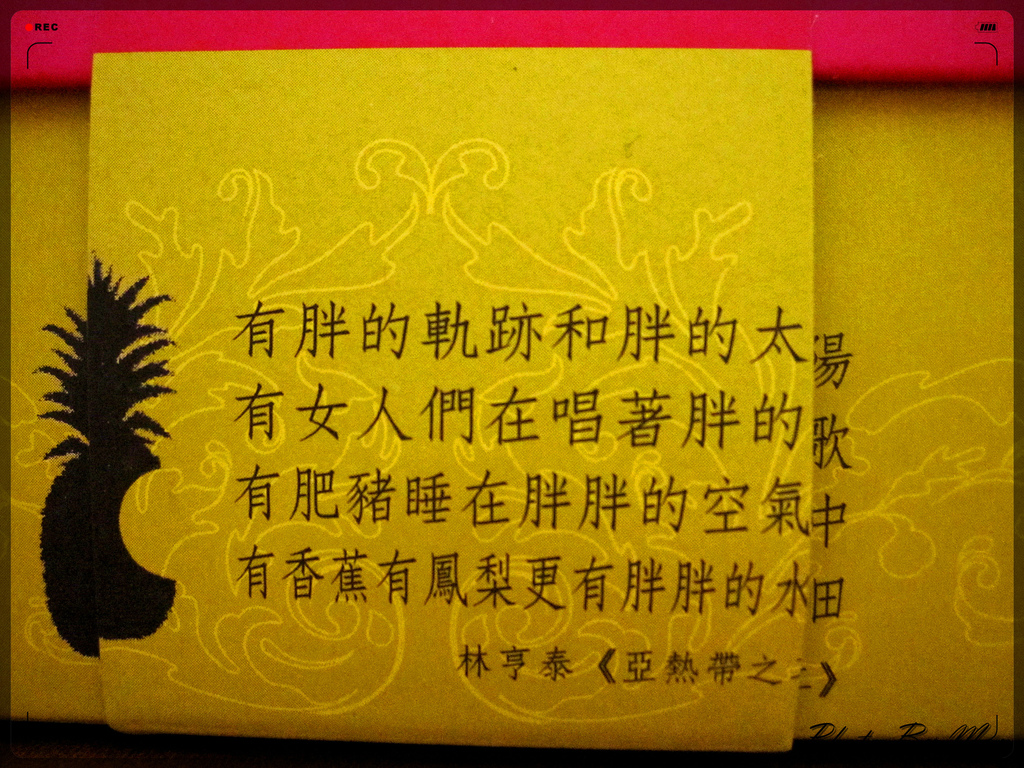 REC
有胖的軌跡和胖的太陽
有女人們在唱著胖的歌
有肥豬睡在胖胖的空氣中
有香蕉有鳳梨更有胖胖的水田
林亨泰《亞熱帶之》